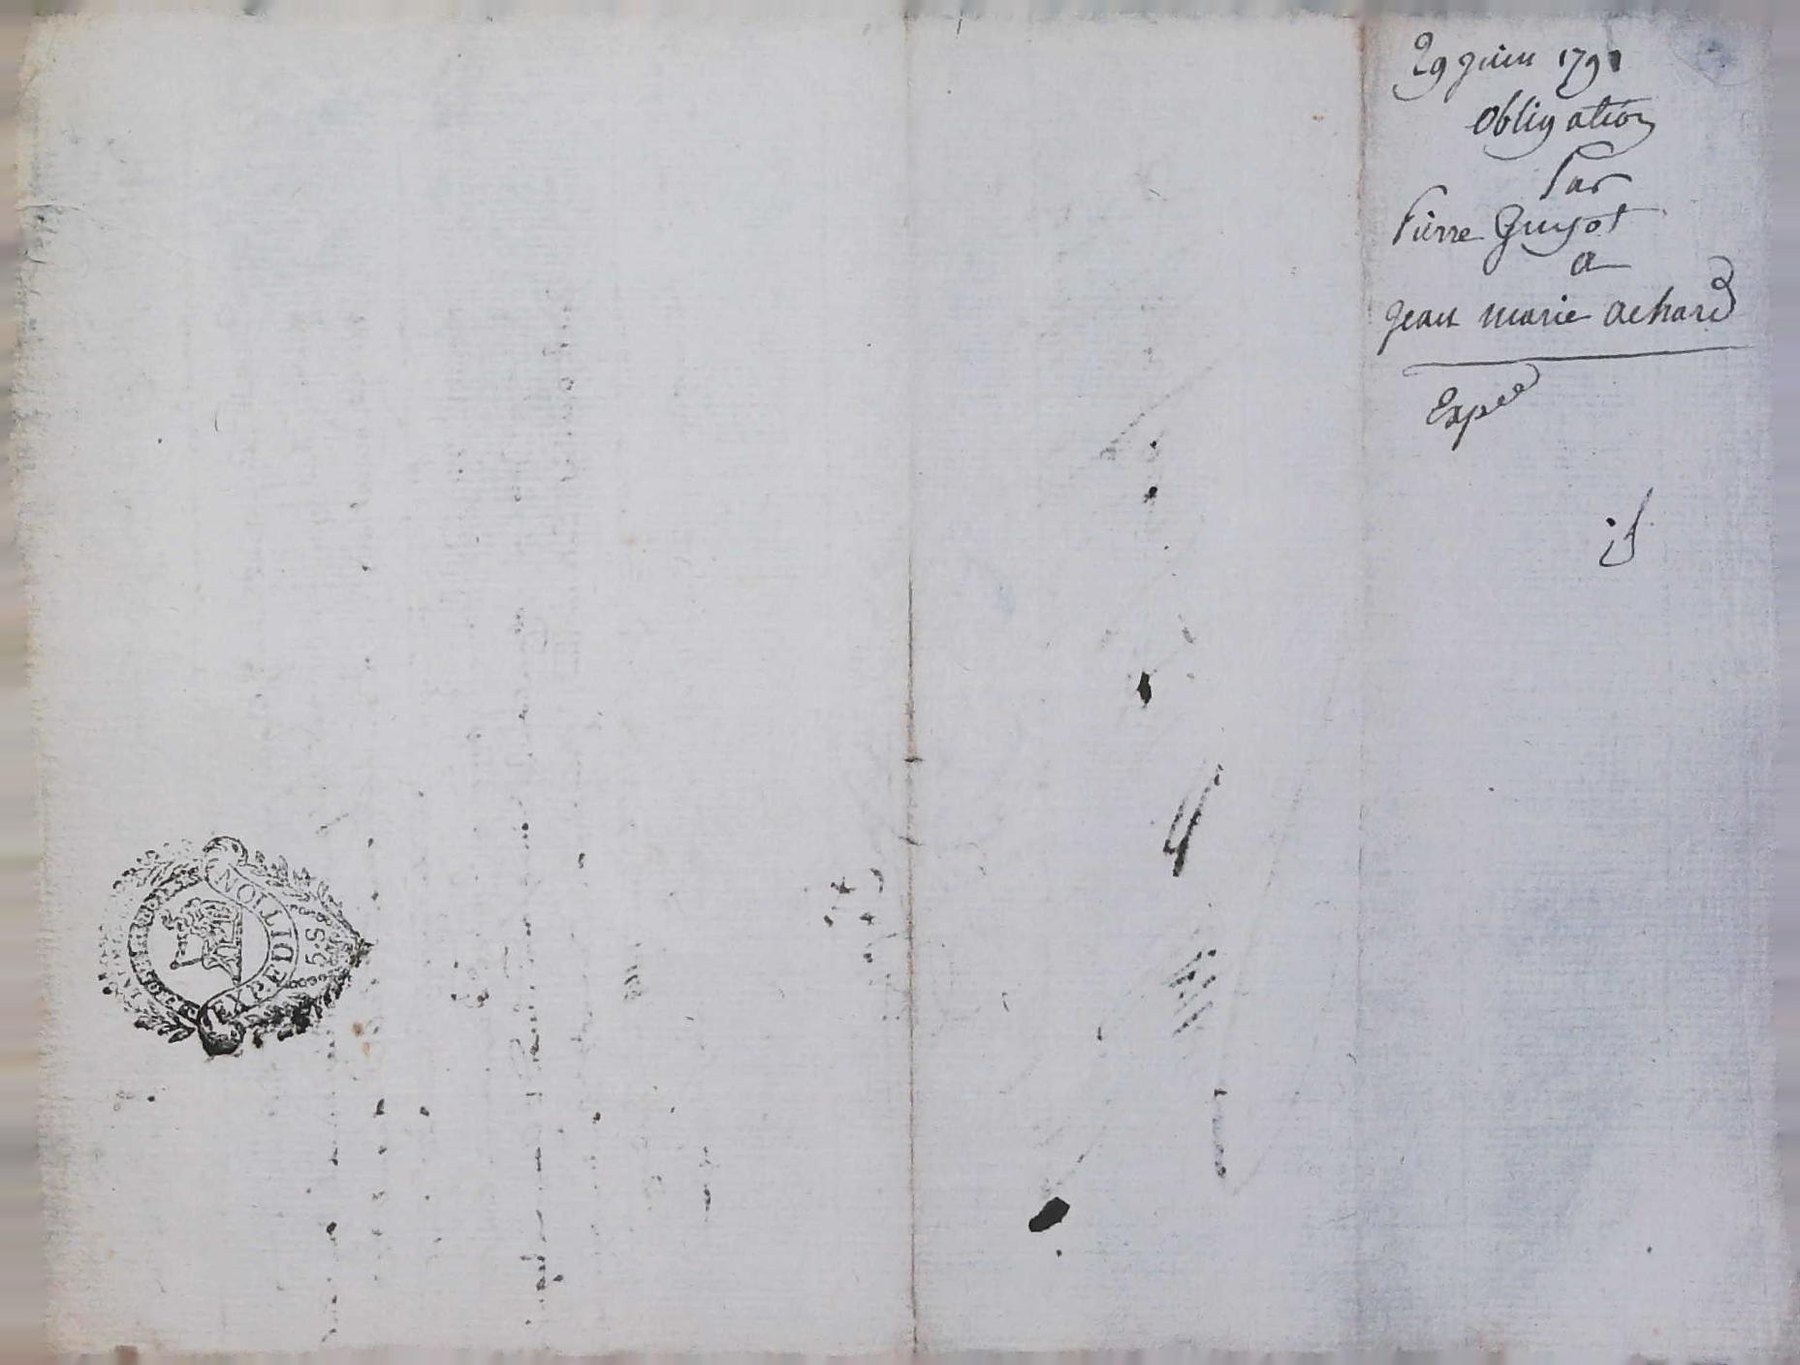 29 juin 1791
Obligation
Par
Pierre Guyot
a
jean marie achard
Expée
EXPEDITION
5.S